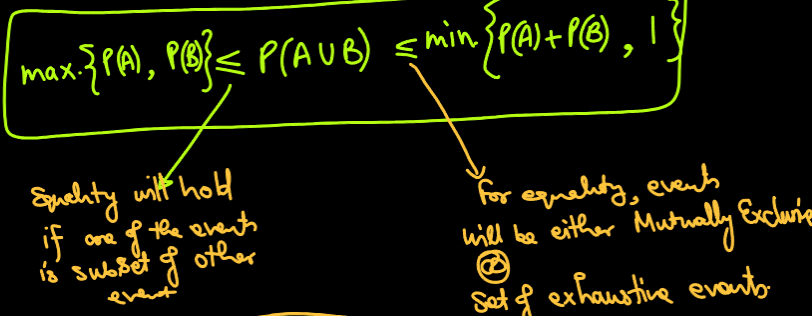 max.{P(A), P(B)} ≤ P(A∪B) ≤ min.{P(A)+P(B), 1}
Equality will hold
if one of the events
is subset of other
event
For equality, events
will be either Mutually Exclusive
OR
Set of exhaustive events.